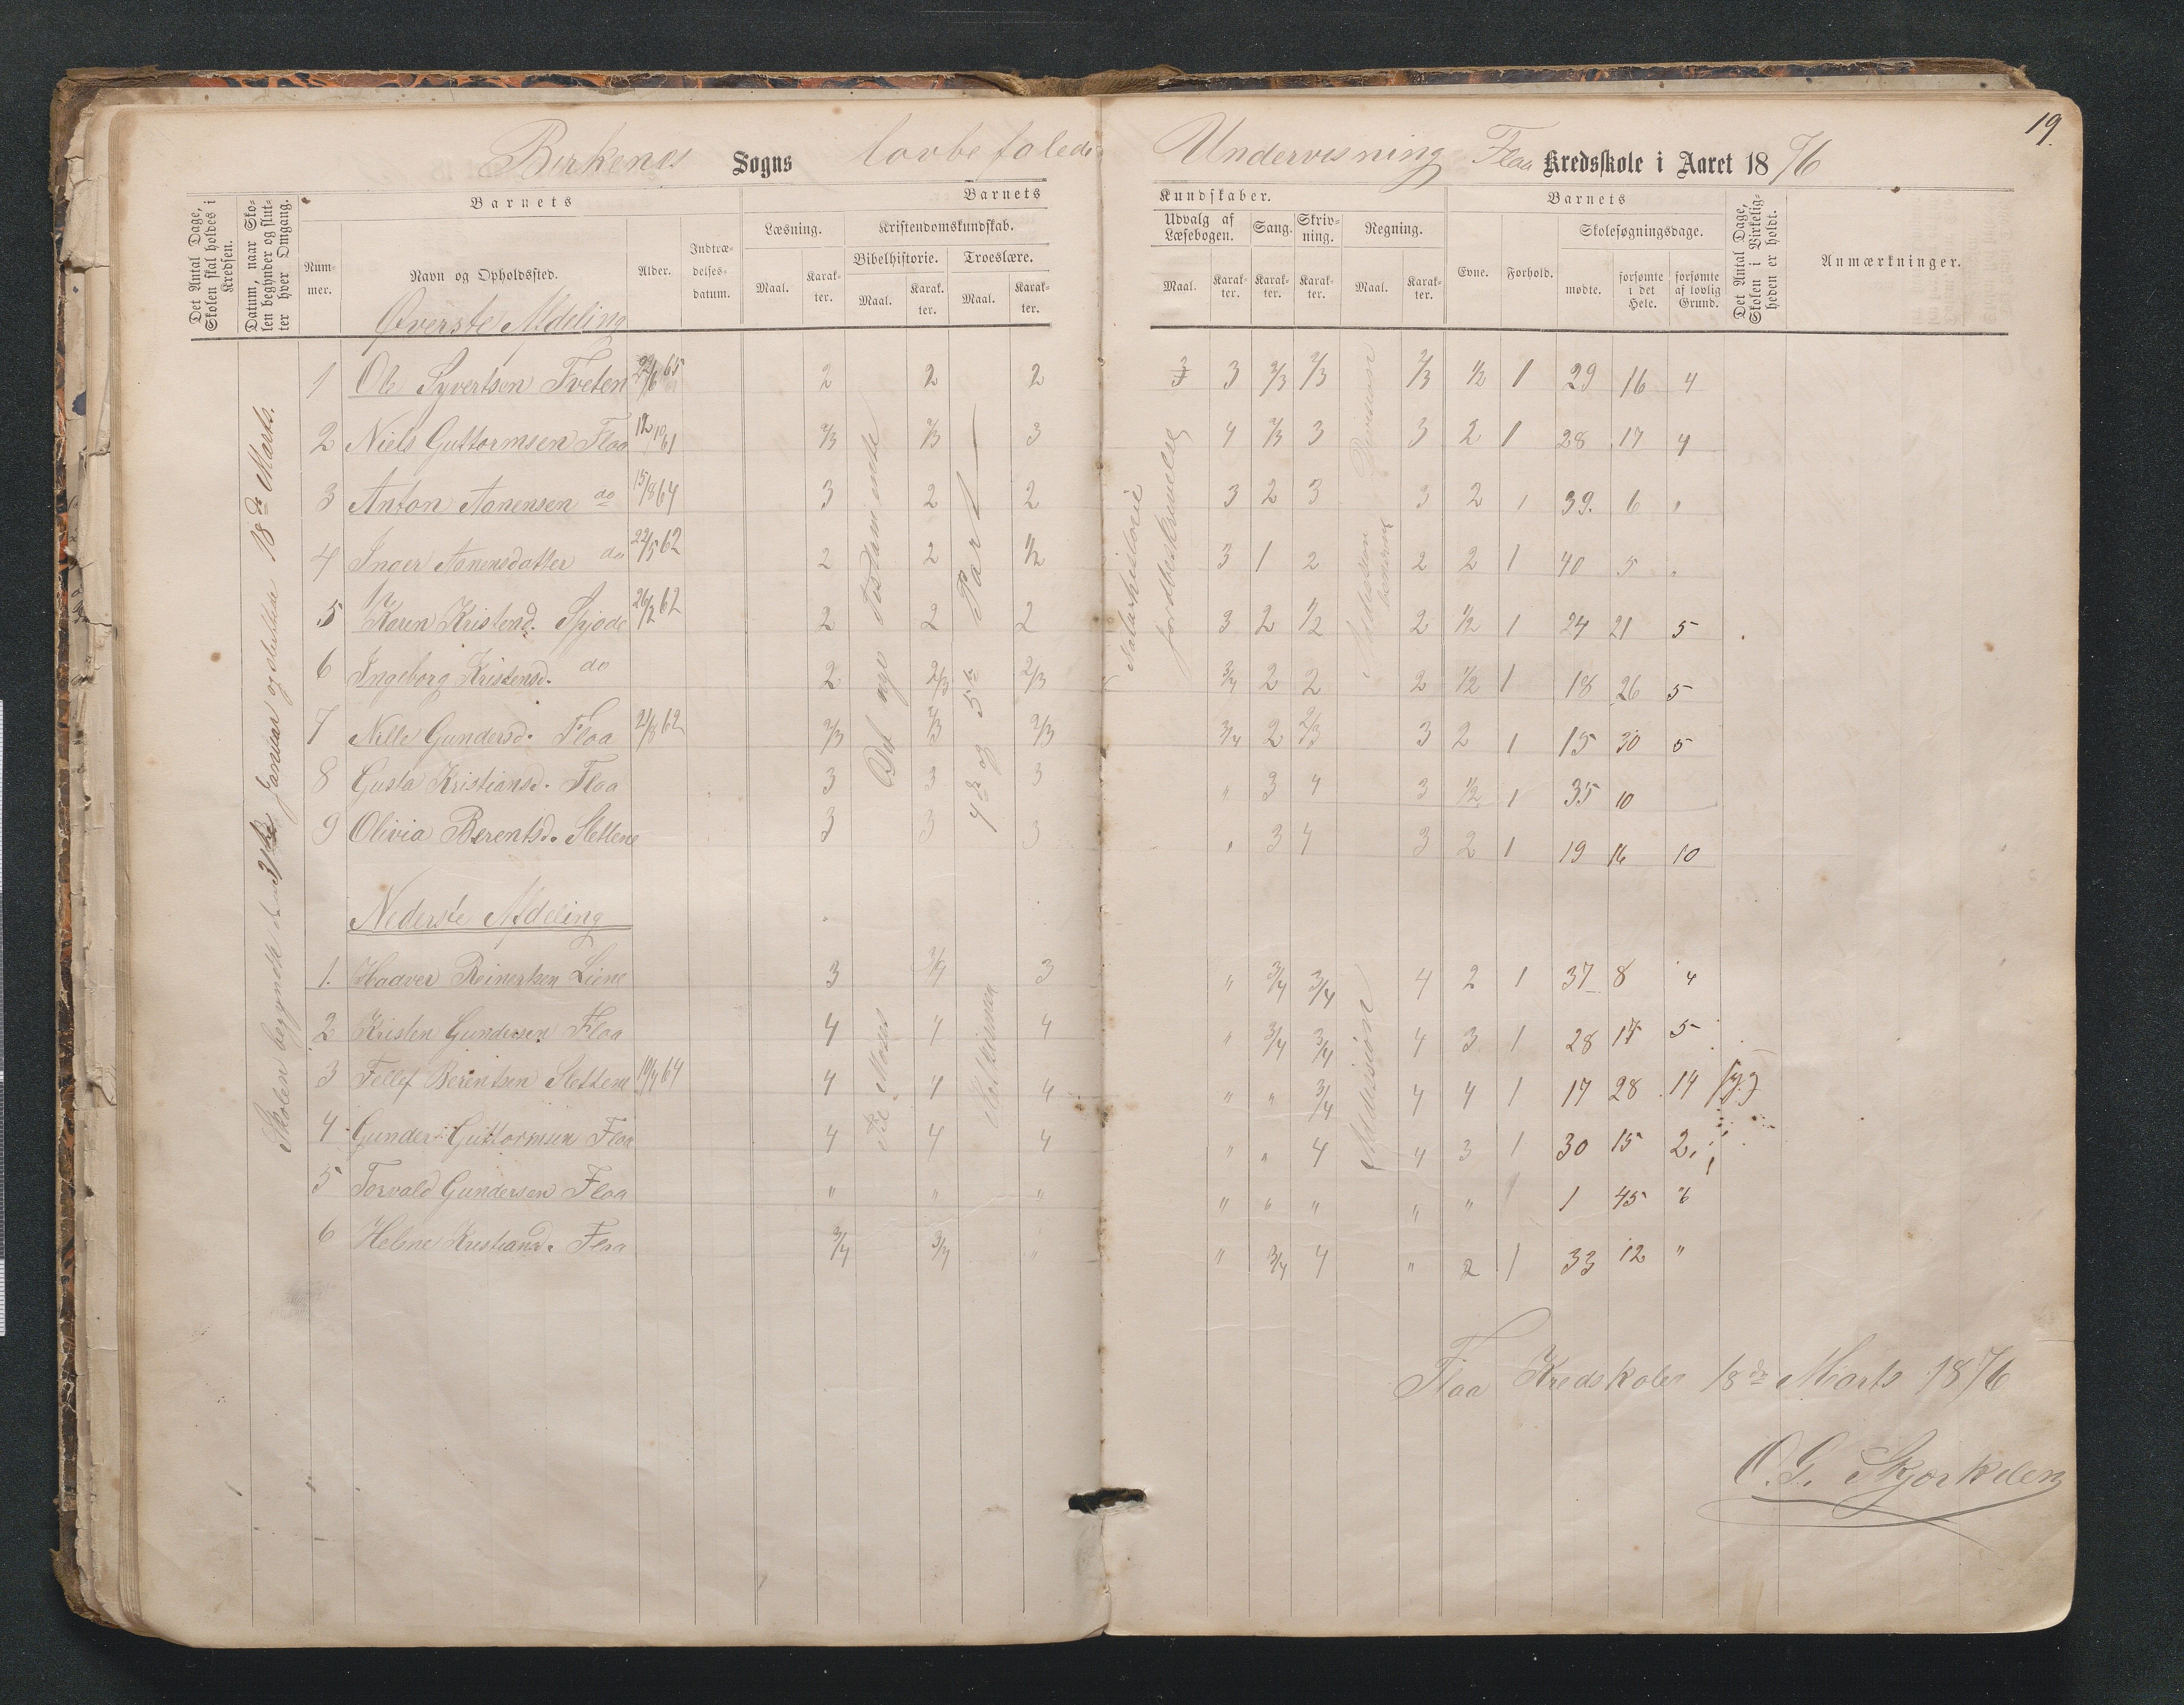 19.
Birkenes Sogns lovbefalede Undervisning Flaa Kredsskole i Aaret 1876
Det Antal Dage, Skolen skal holdes i Kredsen.
Datum, naar Skolen begynder og slutter hver Omgang.
Barnets
Barnets
Kundskaber.
Barnets
Nummer.
Navn og Opholdssted.
Alder.
Indtrædelsesdatum.
Læsning.
Kristendomskundskab.
Bibelhistorie.
Troeslære.
Maal.
Karakter.
Maal.
Karakter.
Maal.
Karakter.
Udvalg af Læsebogen.
Sang.
Skrivning.
Regning.
Maal.
Karakter.
Karakter.
Karakter.
Maal.
Karakter.
Evne.
Forhold.
Skolesøgningsdage.
mødte.
forsømte i det Hele.
forsømte af lovlig Grund.
Det Antal Dage, Skolen i Virkeligheden er holdt.
Anmærkninger.
Øverste Afdeling
Skolen begyndte den 31te Januar og sluttede 18de Marts.
Det nye Testamente
4de og 5te Part
Naturhistorie
Jordbeskrivelse
Division
Addition
1 Ole Syvertsen Tveten 29/6 65 2 2 2 3 3 2/3 2/3 2/3 1/2 1 29 16 4
2 Niels Guttormsen Flaa 12/10 61 2/3 2/3 3 4 2/3 3 3 2 1 28 17 4
3 Anton Aanensen do 15/8 64 3 2 2 3 2 3 3 2 1 39. 6 "
4 Inger Aanensdatter do 22/5 62 2 2 1/2 3 1 2 2 2 1 40 5 "
5 Karen Kristend. Spjode 26/2 62 2 2 2 3 2 1/2 2 1/2 1 24 21 5
6 Ingeborg Kristensd. do 2 2/3 2/3 3/4 2 2 2 1/2 1 18 26 5
7 Nille Gundersd. Flaa 21/8 62 2/3 2/3 2/3 3/4 2 2/3 3 2 1 15 30 5
8 Gusta Kristiansd. Flaa 3 3 3 " 3 4 3 1/2 1 35 10
9 Olivia Berentsd. Slettene 3 3 3 " 3 4 3 2 1 19 16 10
Nederste Afdeling
Til Moses
Addision
1. Haaver Reinertsen Liene 3 3/4 3 " 3/4 3/4 4 2 1 37 8 4
2 Kristen Gundersen Flaa 4 4 4 " 3/4 3/4 4 3 1 28 17 5
3 Tellef Berentsen Slettene 19/4 64 4 4 4 " " 3/4 4 4 1 17 28 14
4 Gunder Guttormsen Flaa 4 4 4 " " 4 4 3 1 30 15 2
5 Torvald Gundersen Flaa " " " " " " " " 1 1 45 "
6 Heline Kristiansd. Flaa 3/4 3/4 " " 3/4 4 " 2 1 33 12 "
Flaa Kredskole 18de Marts 1876